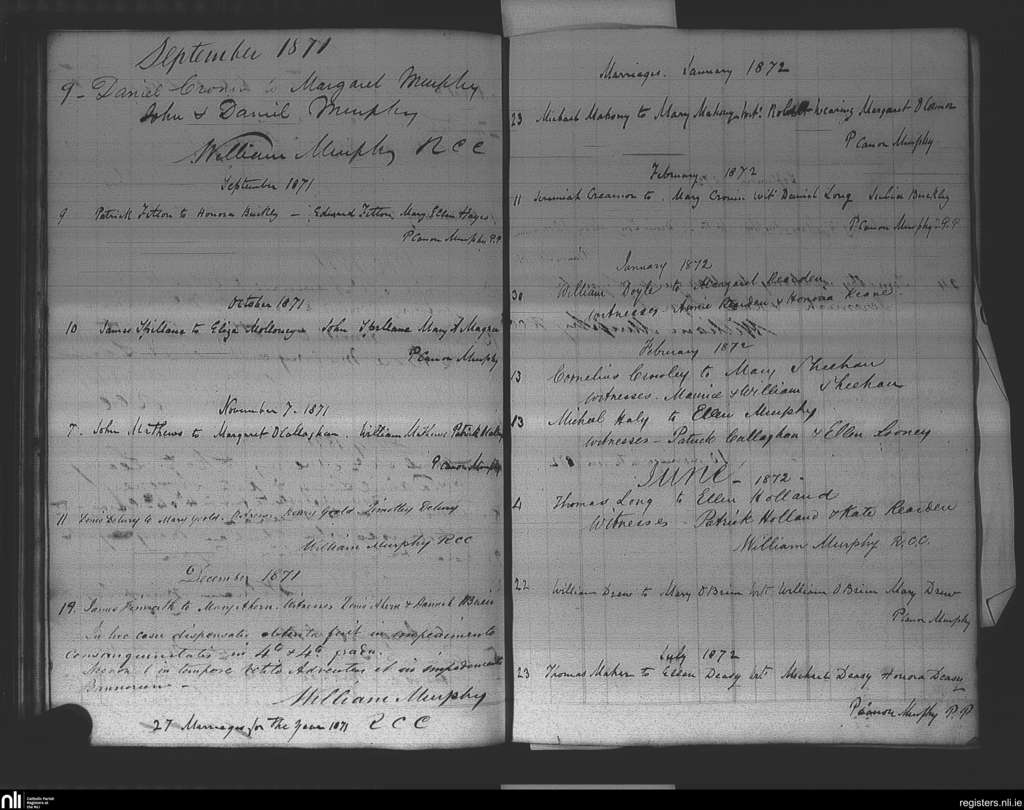 September 1871
9 - Daniel Cronin to Margaret Murphy
John & Daniel Murphy
William Murphy R C C
September 1871
9 Patrick Fitton to Honora Buckley - Edward Fitton, Mary Ellen Hayes
P Canon Murphy P.P.
October 1871
10 James Spillane to Eliza John Spillane Mary A
P Canon Murphy
November 7. 1871
7. John Mathews to Margaret O Callaghan. William Mathews Patrick
P Canon Murphy
11 Denis to Mary Goold. Goold Timothy
William Murphy RCC
December 1871
19. James to Mary Ahern. Witnesses Denis Ahern & Daniel
In hoc casu dispensatio obtenta fuit in impedimento
consanguinitatis in 4to & 4to gradu.
in tempore Adventus et in impedimento
Bannorum -
William Murphy
27 Marriages for the Year 1871 R C C
Marriages. January 1872
23 Michael Mahony to Mary Mahony Wit. Robert Wearing Margaret O Connor
P Canon Murphy
February 1872
11 Jeremiah Creamon to Mary Cronin Wit Daniel Long Julia Buckley
P Canon Murphy P.P
January 1872
30 William Doyle to Margaret Rearden
witnesses Annie Rearden & Honora Keane
February 1872
13 Cornelius Crowley to Mary Sheehan
witnesses. Maurice & William Sheehan
13 Michael Haly to Ellen Murphy
witnesses - Patrick Callaghan & Ellen Looney
June - 1872 -
4 Thomas Long to Ellen Holland
Witnesses - Patrick Holland & Kate Rearden
William Murphy R.C.C.
22 William Drew to Mary O Brien Wit William O Brien Mary Drew
P Canon Murphy
July 1872
23 Thomas Maher to Ellen Deasy Wit Michael Deasy Honora Deasy
P Canon Murphy P.P
nli Catholic Parish
Registers at
the NLI
registers.nli.ie